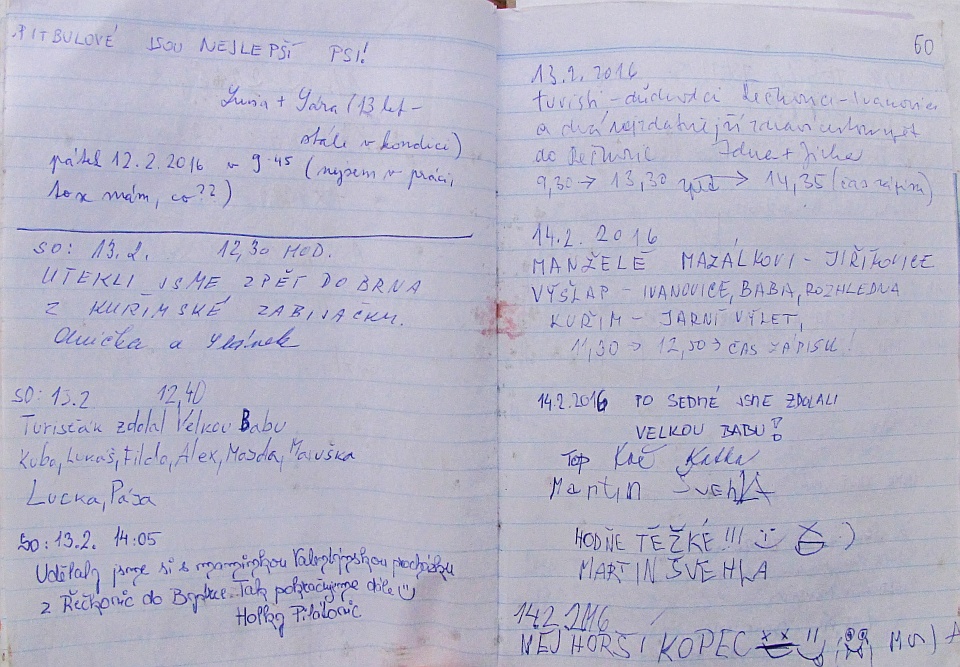 PITBULOVÉ JSOU NEJLEPŠÍ PSI!
(13 let -
stále v kondici)
pátek 12.2.2016 v 9.45 (nejsem v práci,
to x mám, co??)
SO: 13.2. 12,30 HOD.
UTEKLI JSME ZPĚT DO BRNA
Z KUŘIMSKÉ ZABIJAČKY.
a
SO: 13.2 12,40
Turisťák zdolal Velkou Babu
Kuba, Lukáš, Filda, Alex, Majda, Maruška
Lucka, Pája
So: 13.2. 14:05
Udělaly jsme si s maminkou Valentýnskou procházku
z Řečkovic do Bystrce. Tak pokračujeme dále
Holky Pilátovic
60
13.2.2016
turisti - důchodci Řečkovice - Ivanovice
a
do Řečkovic
9,30 → 13,30 zpět → 14,35 (čas zápisu)
14.2.2016
MANŽELÉ MAZÁLKOVI - JIŘÍKOVICE
VÝŠLAP - IVANOVICE, BABA, ROZHLEDNA
KUŘIM - JARNÍ VÝLET,
11,30 → 12,50 → ČAS ZÁPISU!
14.2.2016 PO SEDMÉ JSME ZDOLALI
VELKOU BABU!
Katka
Martin ŠvehlA
HODNĚ TĚŽKÉ!!! :)
MARTIN ŠVEHLA
14.2.2016
NEJHORŠÍ KOPEC